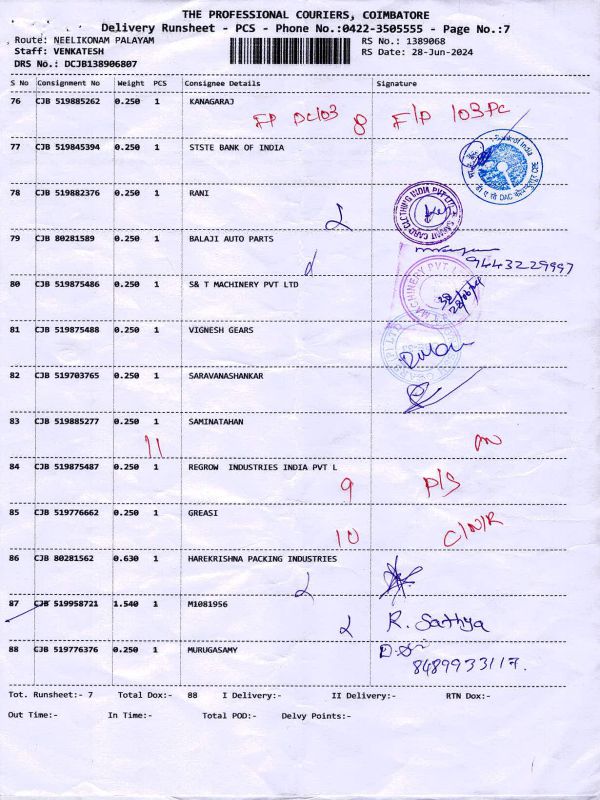 THE PROFESSIONAL COURIERS, COIMBATORE
Delivery Runsheet - PCS - Phone No.:0422-3505555 - Page No.:7
Route: NEELIKONAM PALAYAM RS No.: 1389068
Staff: VENKATESH RS Date: 28-Jun-2024
DRS No.: DCJB138906807
S No Consignment No Weight PCS Consignee Details Signature
76 CJB 519885262 0.250 1 KANAGARAJ
8 F/P 103 PC
77 CJB 519845394 0.250 1 STSTE BANK OF INDIA
78 CJB 519882376 0.250 1 RANI
79 CJB 80281589 0.250 1 BALAJI AUTO PARTS
9443229997
80 CJB 519875486 0.250 1 S& T MACHINERY PVT LTD
81 CJB 519875488 0.250 1 VIGNESH GEARS
82 CJB 519703765 0.250 1 SARAVANASHANKAR
83 CJB 519885277 0.250 1 SAMINATAHAN
11
84 CJB 519875487 0.250 1 REGROW INDUSTRIES INDIA PVT L
9 P/S
85 CJB 519776662 0.250 1 GREASI
10 C/N/R
86 CJB 80281562 0.630 1 HAREKRISHNA PACKING INDUSTRIES
87 CJB 519958721 1.540 1 M1081956
R. Sathya
88 CJB 519776376 0.250 1 MURUGASAMY
8489933117.
Tot. Runsheet:- 7 Total Dox:- 88 I Delivery:- II Delivery:- RTN Dox:-
Out Time:- In Time:- Total POD:- Delvy Points:-